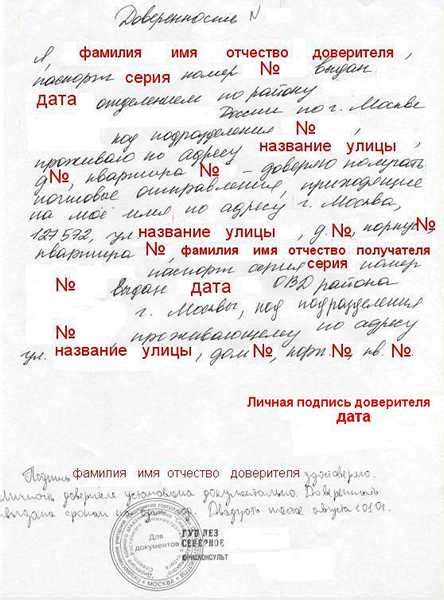 Доверенность N
Я, фамилия имя отчество доверителя,
паспорт серия номер № выдан
дата отделением по району
России по г. Москве
код подразделения №,
проживаю по адресу название улицы,
д №, квартира № - доверяю получать
почтовые отправления, приходящие
на моё имя по адресу г. Москва,
127572, ул название улицы, д. №, корпус №
квартира №, фамилия имя отчество получателя
паспорт серия серия номер
№ выдан дата ОВД района
г. Москвы, код подразделения
№, проживающему по адресу
ул. название улицы, дом №, корп № кв. №.
Личная подпись доверителя
дата
Подпись фамилия имя отчество доверителя удостоверяю.
Личность доверителя установлена документально. Доверенность
выдана сроком на Двадцать августа
Для
документов
МОСКВА
ГУП ДЕЗ
СЕВЕРНОЕ
ЮРИСКОНСУЛЬТ